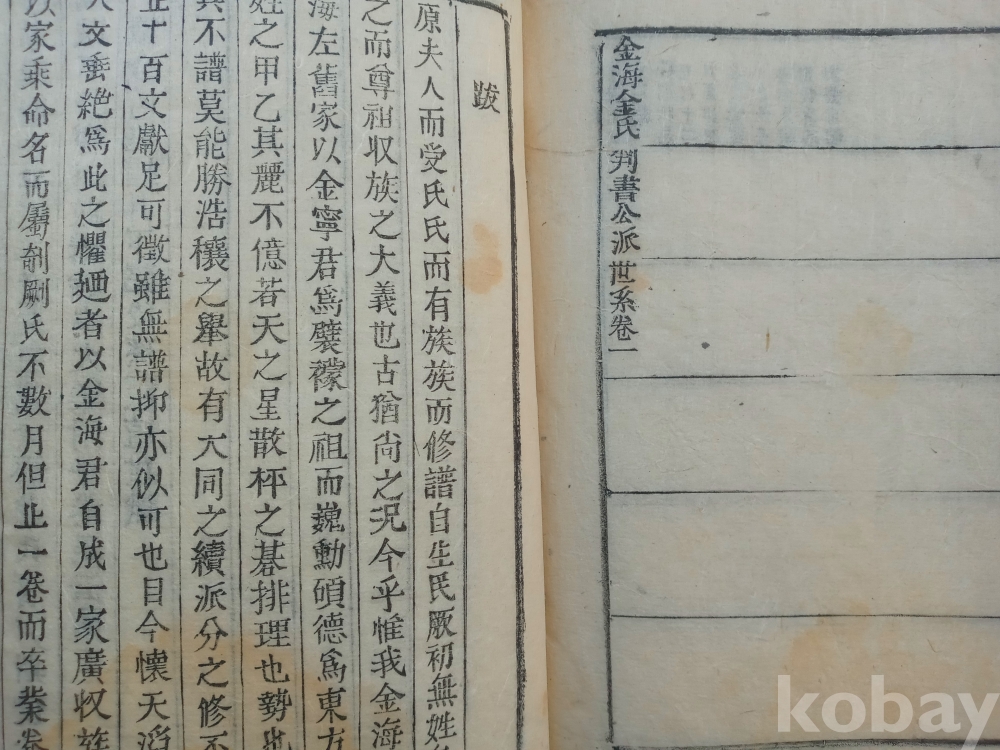 金海金氏判書公派世系卷一
跋
原夫人而受氏氏而有族族而修譜自生民厥初無姓
之而尊祖収族之大義也古猶尙之况今乎惟我金海
海左舊家以金寧君爲襞穰之祖而巍勳碩德爲東方
姓之甲乙其麗不億若天之星散枰之碁排理也勢也
不譜莫能勝浩穰之擧故有大同之續派分之修不
十百文獻足可徵雖無譜抑亦似可也目今懷天滔
文垂絶爲此之懼廼者以金海君自成一家廣収族
以家乘命名而屬剞劂氏不數月但止一卷而卒業卷
kobay